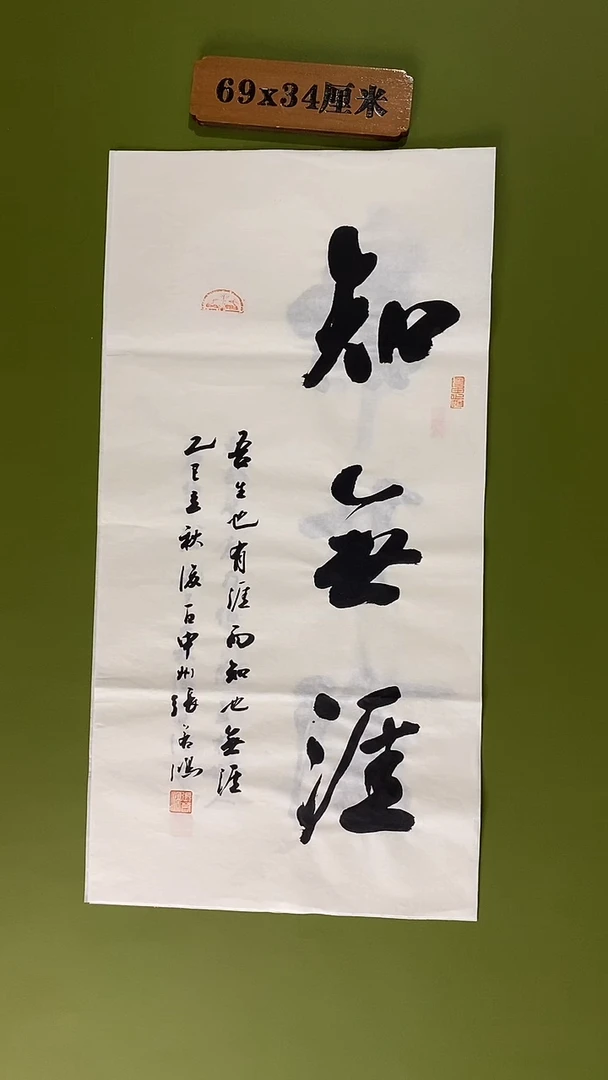 69x34厘米
知無涯
吾生也有涯而知也無涯
乙巳立秋後一日中州張鴻